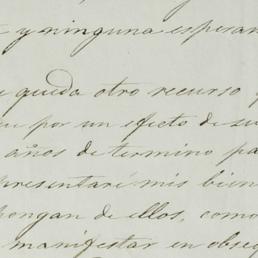 y ninguna esperan
queda otro recurso
por un efecto de su
años de termino pa
presentaré mis bien
pongan de ellos, como
manifestar en obseq